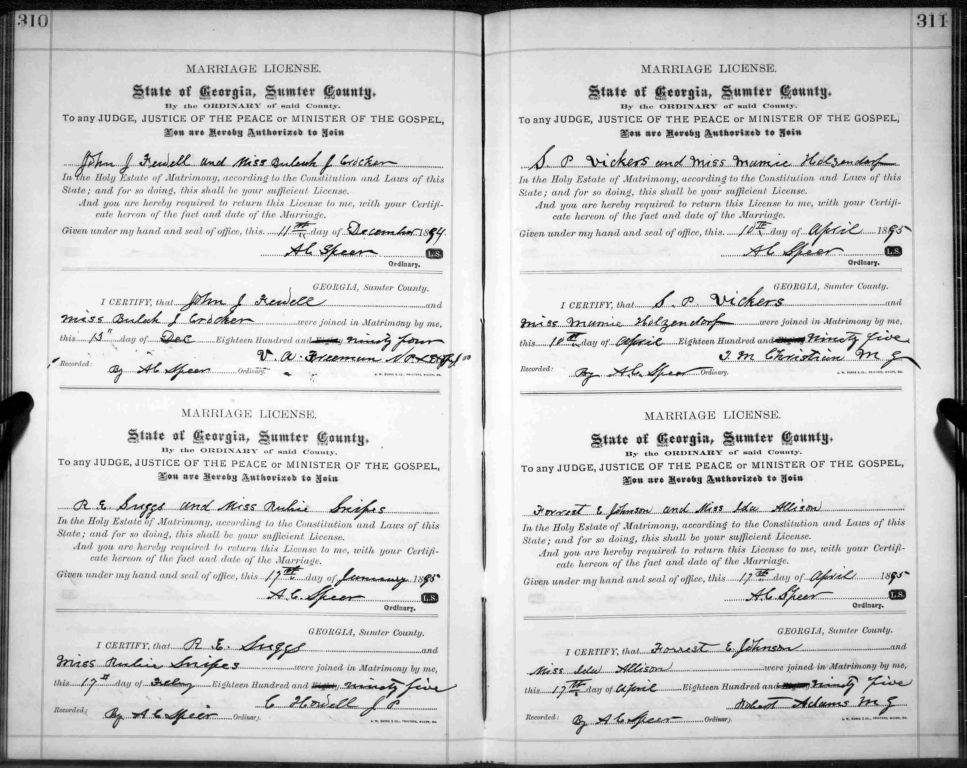 310
MARRIAGE LICENSE.
State of Georgia, Sumter County.
By the ORDINARY of said County.
To any JUDGE, JUSTICE OF THE PEACE or MINISTER OF THE GOSPEL,
You are Hereby Authorized to Join
John J Fewell and Miss Bulah J Crocker
In the Holy Estate of Matrimony, according to the Constitution and Laws of this
State; and for so doing, this shall be your sufficient License.
And you are hereby required to return this License to me, with your Certifi-
cate hereon of the fact and date of the Marriage.
Given under my hand and seal of office, this 11th day of December 1894
A C Speer L.S.
Ordinary.
GEORGIA, Sumter County.
I CERTIFY, that John J Fewell and
Miss Bulah J Crocker were joined in Matrimony by me,
this 13" day of Dec Eighteen Hundred and Eighty ninety four
V. A. Freeman N P
Recorded: By A C Speer Ordinary.
MARRIAGE LICENSE.
State of Georgia, Sumter County.
By the ORDINARY of said County.
To any JUDGE, JUSTICE OF THE PEACE or MINISTER OF THE GOSPEL,
You are Hereby Authorized to Join
R E Suggs and Miss Ruhie Snipes
In the Holy Estate of Matrimony, according to the Constitution and Laws of this
State; and for so doing, this shall be your sufficient License.
And you are hereby required to return this License to me, with your Certifi-
cate hereon of the fact and date of the Marriage.
Given under my hand and seal of office, this 17th day of January 1895
A. C. Speer L.S.
Ordinary.
GEORGIA, Sumter County.
I CERTIFY, that R. E. Suggs and
Miss Ruhie Snipes were joined in Matrimony by me,
this 17" day of Feby Eighteen Hundred and Eighty ninety five
C Howell J P
Recorded: By A C Speer Ordinary.
311
MARRIAGE LICENSE.
State of Georgia, Sumter County.
By the ORDINARY of said County.
To any JUDGE, JUSTICE OF THE PEACE or MINISTER OF THE GOSPEL,
You are Hereby Authorized to Join
S. P Vickers and Miss Mamie Holzendorf
In the Holy Estate of Matrimony, according to the Constitution and Laws of this
State; and for so doing, this shall be your sufficient License.
And you are hereby required to return this License to me, with your Certifi-
cate hereon of the fact and date of the Marriage.
Given under my hand and seal of office, this 10th day of April 1895
A C Speer L.S.
Ordinary.
GEORGIA, Sumter County.
I CERTIFY, that S. P. Vickers and
Miss Mamie Holzendorf were joined in Matrimony by me,
this 10th day of April Eighteen Hundred and Eighty Ninety five
J. M Christian M G
Recorded: By A. C. Speer Ordinary.
MARRIAGE LICENSE.
State of Georgia, Sumter County.
By the ORDINARY of said County.
To any JUDGE, JUSTICE OF THE PEACE or MINISTER OF THE GOSPEL,
You are Hereby Authorized to Join
Forrest E Johnson and Miss Ida Allison
In the Holy Estate of Matrimony, according to the Constitution and Laws of this
State; and for so doing, this shall be your sufficient License.
And you are hereby required to return this License to me, with your Certifi-
cate hereon of the fact and date of the Marriage.
Given under my hand and seal of office, this 17th day of April 1895
A C Speer L.S.
Ordinary.
GEORGIA, Sumter County.
I CERTIFY, that Forrest E Johnson and
Miss Ida Allison were joined in Matrimony by me,
this 17th day of April Eighteen Hundred and Eighty Ninety five
Robert Adams M G
Recorded: By A C Speer Ordinary.